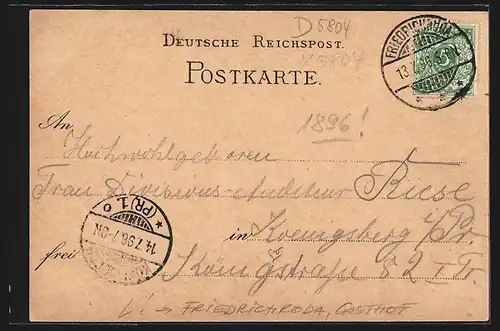 D 5804
DEUTSCHE REICHSPOST.
V 5804
POSTKARTE.
FRIEDRICHRODA
13
5
1896!
An
Hochwohlgeboren
Frau Divisions-Auditeur Riese
(PR) 1. o
14.7.96.7-8N
in Koenigsberg i/Pr.
frei Königstraße 82 I Tr.
L! → FRIEDRICHRODA, GASTHOF